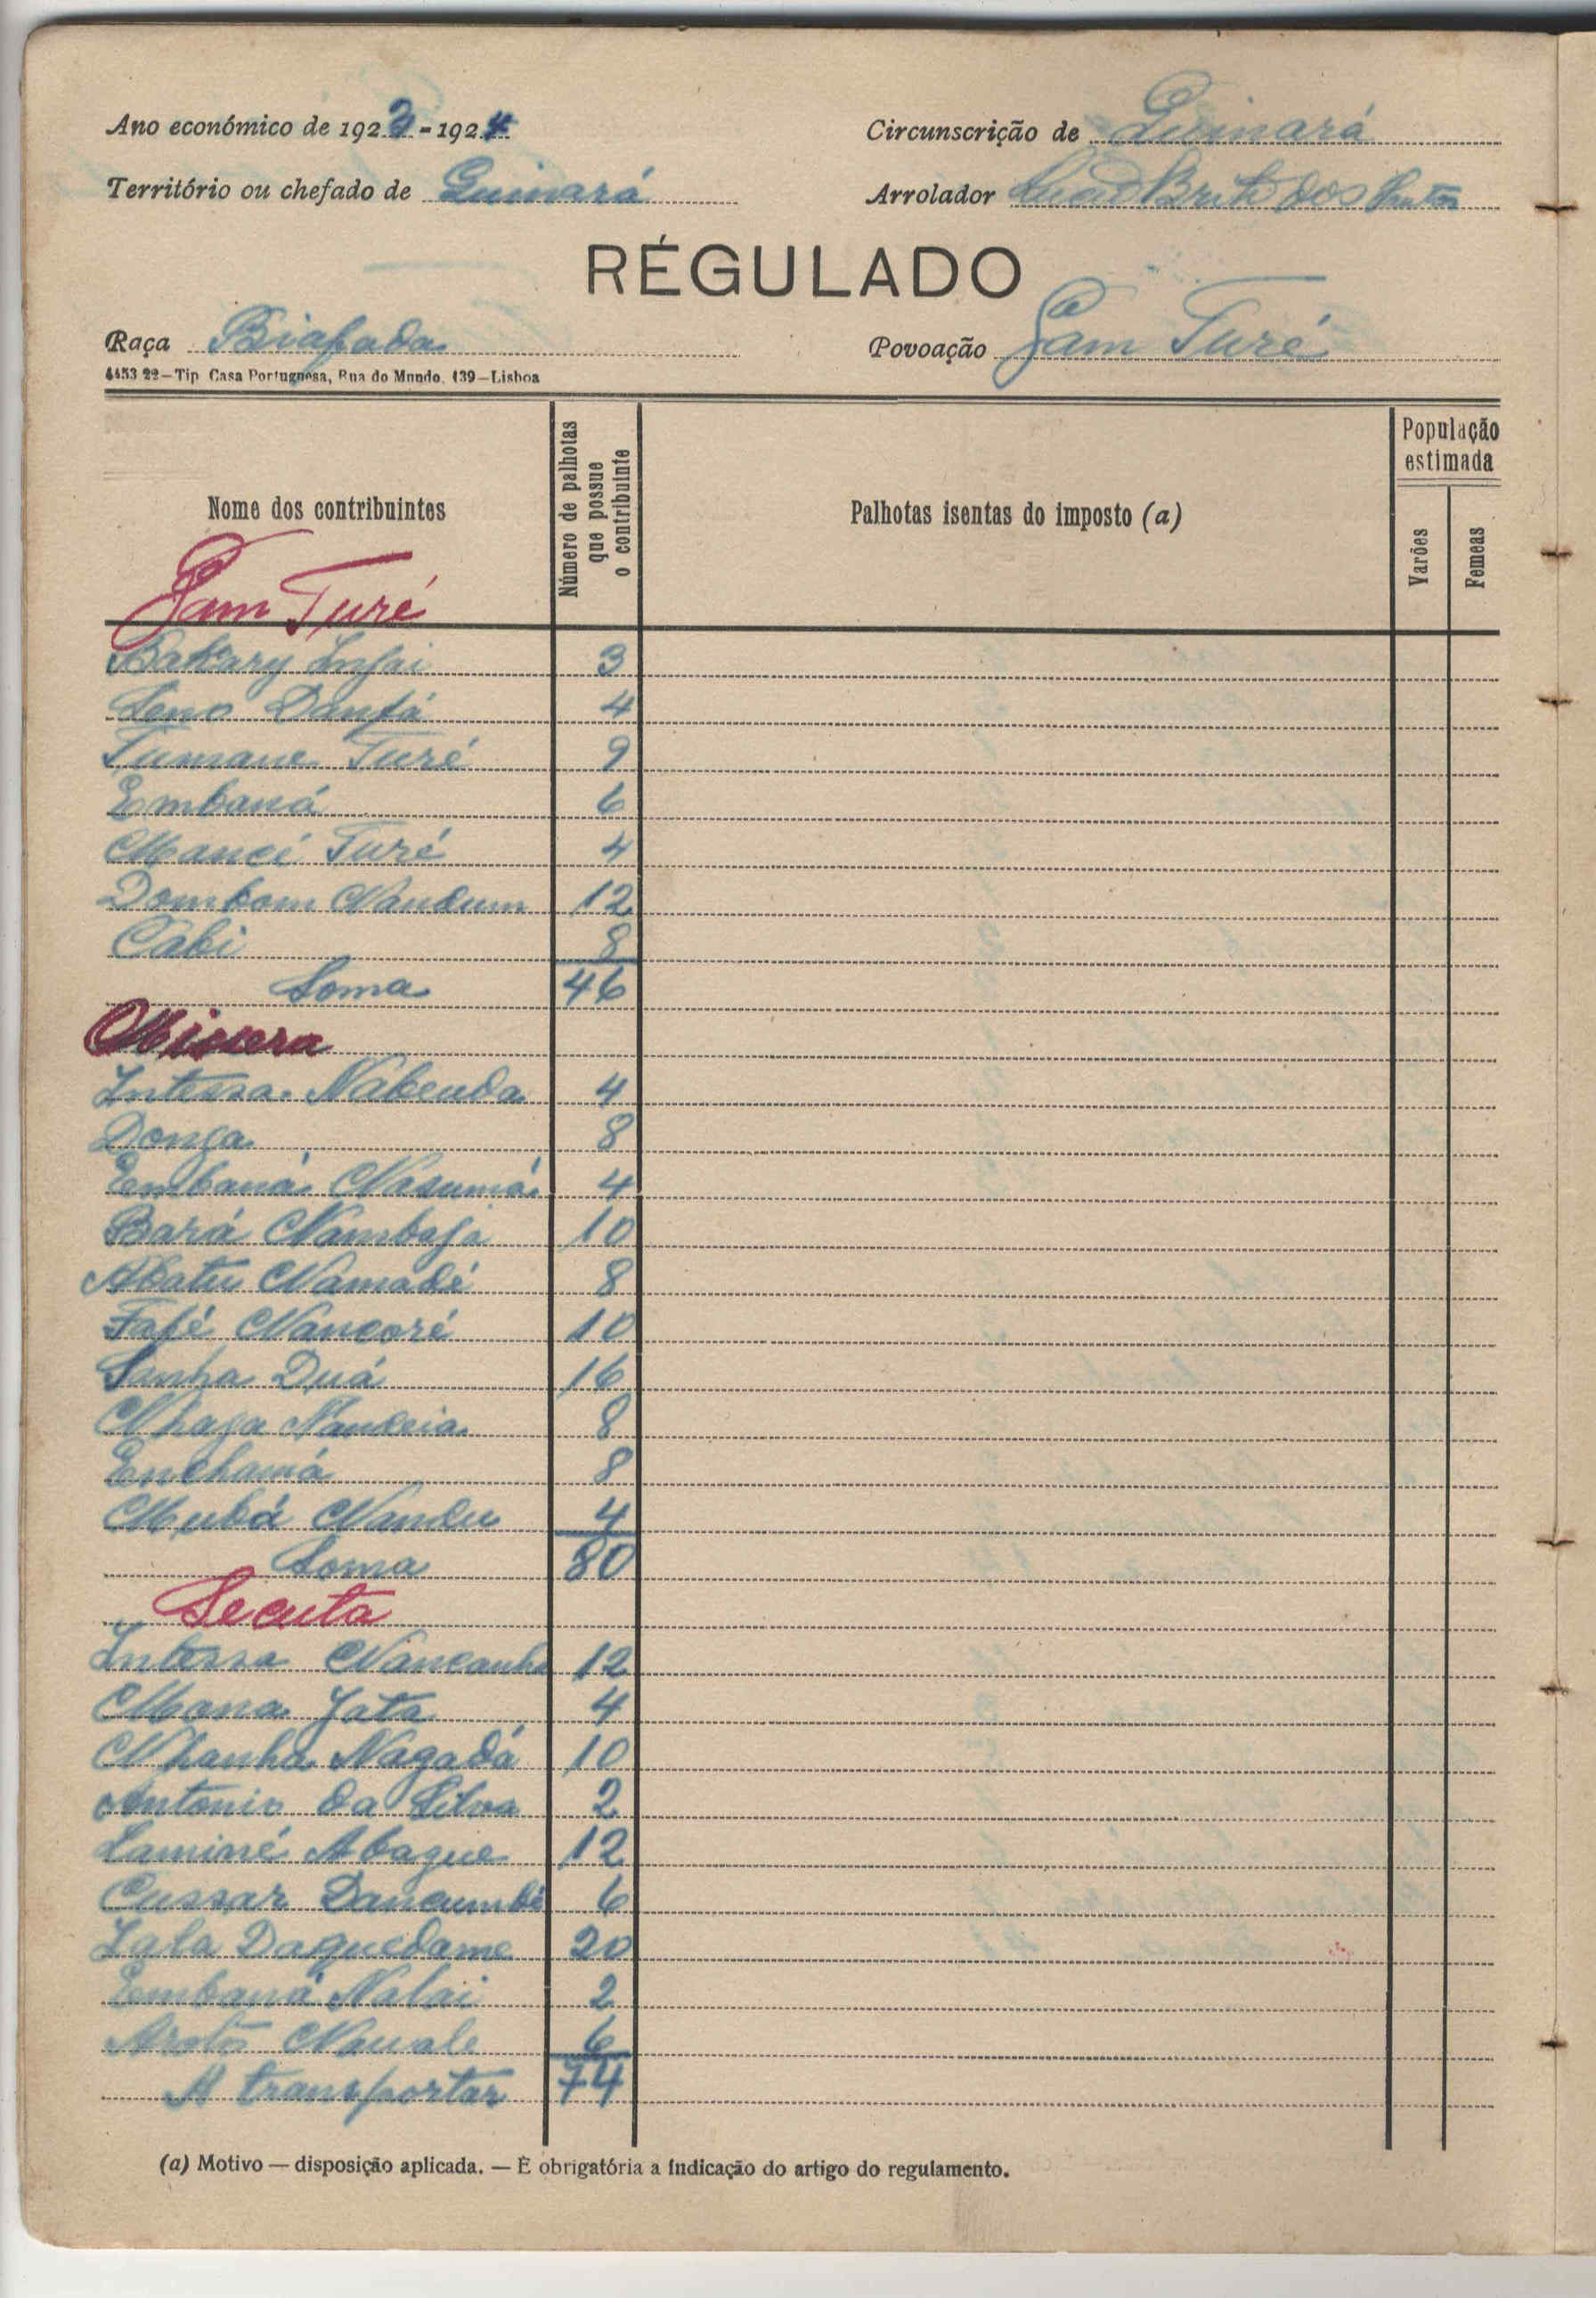 Ano económico de 1923-1924
Circunscrição de Quinará
Território ou chefado de Quinará
Arrolador Brito dos Santos
RÉGULADO
Raça Biafada
Povoação Gam Turé
4453 22—Tip Casa Portuguesa, Rua do Mundo, 139—Lisboa
Nome dos contribuintes
Número de palhotas que possue o contribuinte
Palhotas isentas do imposto (a)
População estimada
Varões
Femeas
Gam Turé
Bakary Infai 3
Seno Danfá 4
Tumane Turé 9
Embaná 6
Manci Turé 4
Dombom Nandum 12
Cabi 8
Soma 46
Missera
Intessa Nabenda 4
Donga 8
Embaná Nasumá 4
Bará Nambafa 10
Abatu Namadé 8
Fafé Nancoré 10
Sanha Duá 16
Nhaga Nandeia 8
Enchamá 8
Mubá Nandu 4
Soma 80
Secuta
Intessa Nancanha 12
Mana Jata 4
Nhanha Nagadá 10
Antonio da Silva 2
Laminé Abague 12
Cussar Dancumbé 6
Lala Daguedame 20
Embaná Nalai 2
6
A transportar 74
(a) Motivo — disposição aplicada. — É obrigatória a indicação do artigo do regulamento.